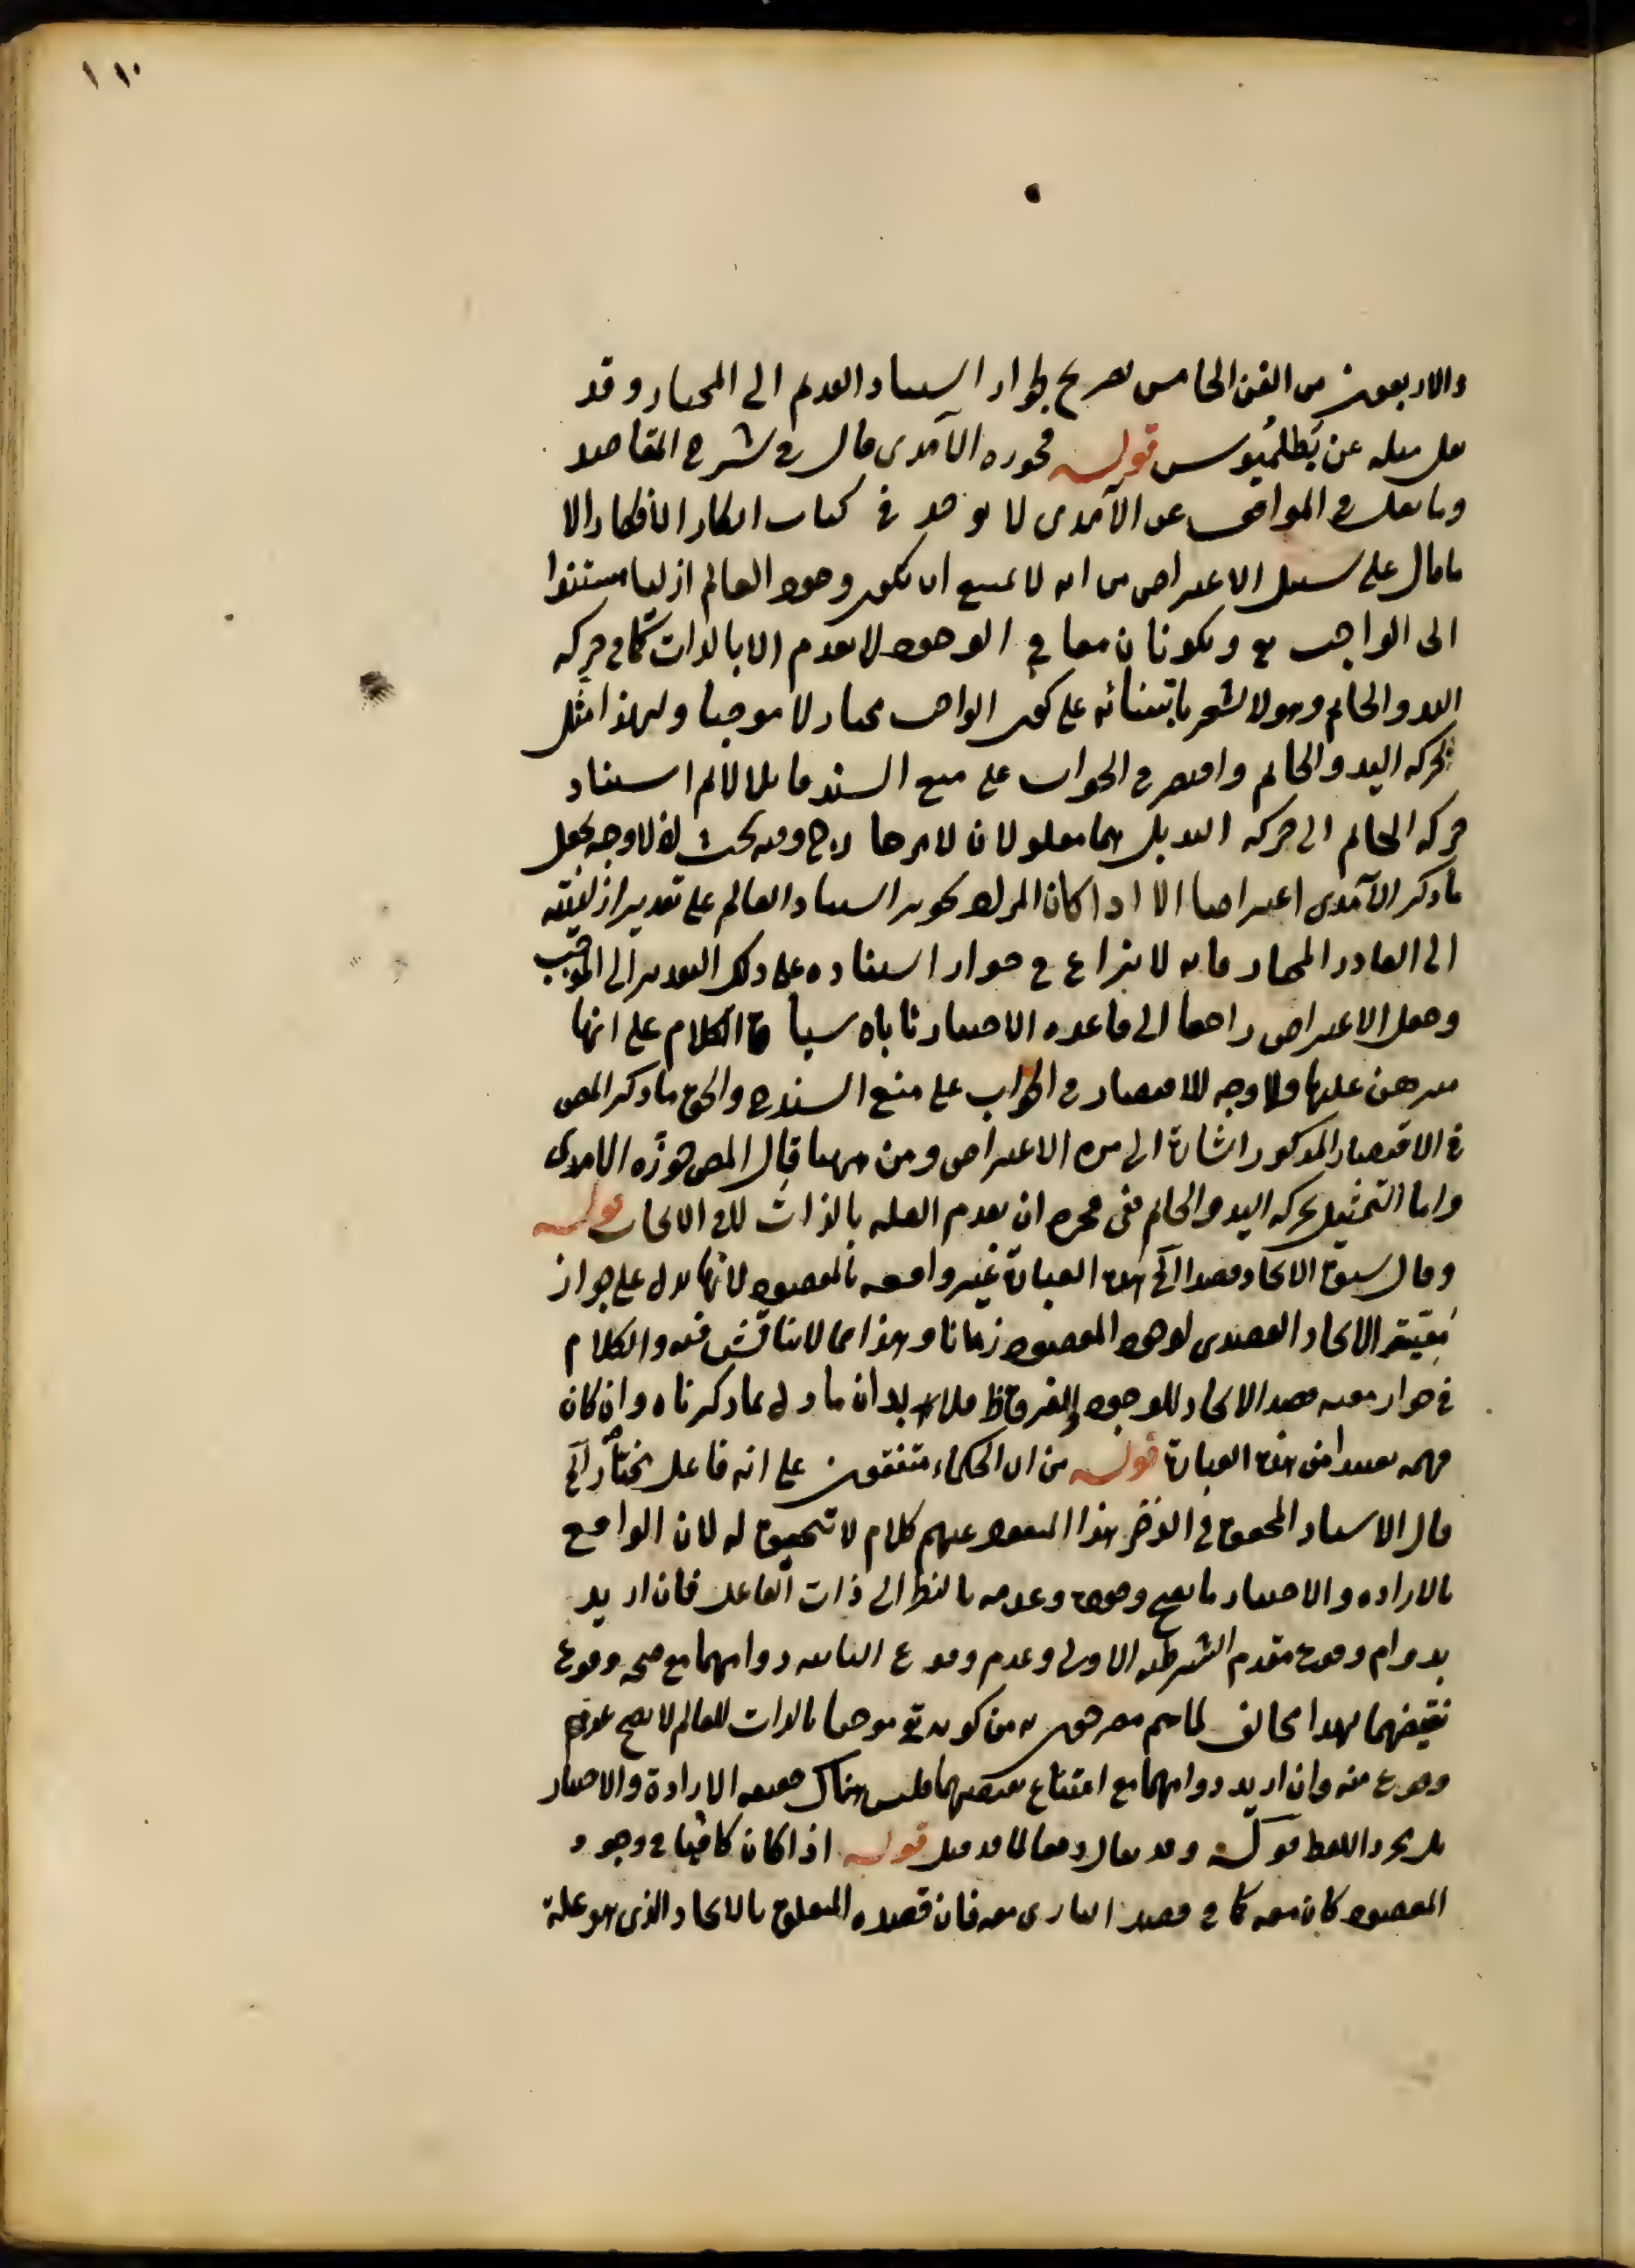 ١١٠
والاربعون من الفن الخامس تصريح بجواز استناد القديم الى المختار وقد
نقل مثله عن بطلميوس قوله مجوزه الآمدى قال فى شرح المقاصد
وما نقل فى المواقف عن الآمدى لا يوجد فى كتاب ابكار الافكار الا
ما قال على سبيل الاعتراض من انه لا يمتنع ان يكون وجود العالم ازليا مستندا
الى الواجب تع ويكونان معا فى الوجود لا تقدم الا بالذات كما فى حركه
اليد والخاتم وهو لا يشعر بابتنائه على كون الواجب مختارا لا موجبا ولهذا مثل
بحركه اليد والخاتم واقتصر فى الجواب على منع السند قائلا لا نم استناد
حركه الخاتم الى حركه اليد بل هما معلولان لامر خارج وفيه بحث اذ لا وجه لجعل
ما ذكر الآمدى اعتراضا الا اذا كان المراد تجويز استناد العالم على تقدير ازليته
الى القادر المختار فانه لا نزاع فى جواز استناده على ذلك التقدير الى الموجب
وجعل الاعتراض راجعا الى قاعده الاختيار ياباه سياق الكلام على انها
مبرهن عليها ولا وجه للاقتصار فى الجواب على منع السند والحق ما ذكر المص
فى الاقتصار المذكور اشارة الى الاعتراض ومن ههنا قال المص جوزه الامدى
واما التمثيل بحركه اليد والخاتم ففى مجرد ان تقدم العله بالذات لا فى الايجاب قوله
وقال سبق الايجاد قصدا الخ هذه العبارة غير وافيه بالمقصود لانها تدل على جواز
معية الايجاد القصدى لوجود المقصود زمانا وهذا مما لا يناقش فيه والكلام
فى جواز معيه قصد الايجاد للوجود والفرق ظ فلا بد ان ماول بما ذكرناه وان كان
فهمه بعيدا من هذه العبارة قوله من ان الحكماء متفقون على انه فاعل مختار الخ
قال الاستاد المحقق فى الذخر هذا المنقول عنهم كلام لا تحقيق له لان الواقع
بالاراده والاختيار ما يصح وجوده وعدمه بالنظر الى ذات الفاعل فان اريد
بدوام وقوع مقدم الشرطيه الاولى وعدم وقوع الثانيه دوامهما مع صحه وقوع
نقيضهما فهذا مخالف لما هم مصرحون به من كونه تع موجبا بالذات للعالم لا يصح عدم
وقوع منه وان اريد دوامهما مع امتناع نقيضهما فليس هناك حقيقه الارادة والاختيار
بل مجرد اللفظ قوله وقد يقال دفعا لما قد قيل قوله اذا كان كافيا فى وجود
المقصود كان معه كما فى قصد البارى معه فان قصده المتعلق بالايجاد الذى هو علة